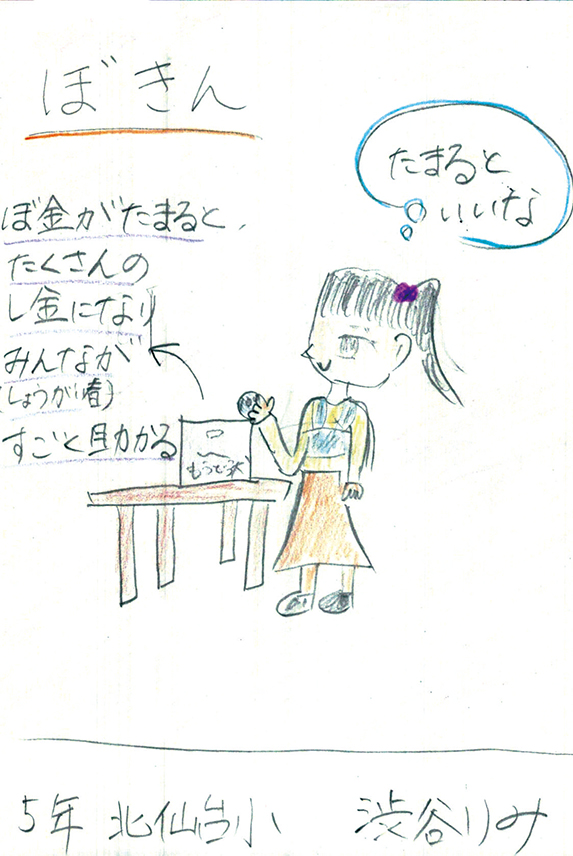 ぼきん
たまると
いいな
ぼ金がたまると、
たくさんの
し金になり
みんなが
(しょうがい者)
すごと助かる
5年 北仙台小 渋谷りみ